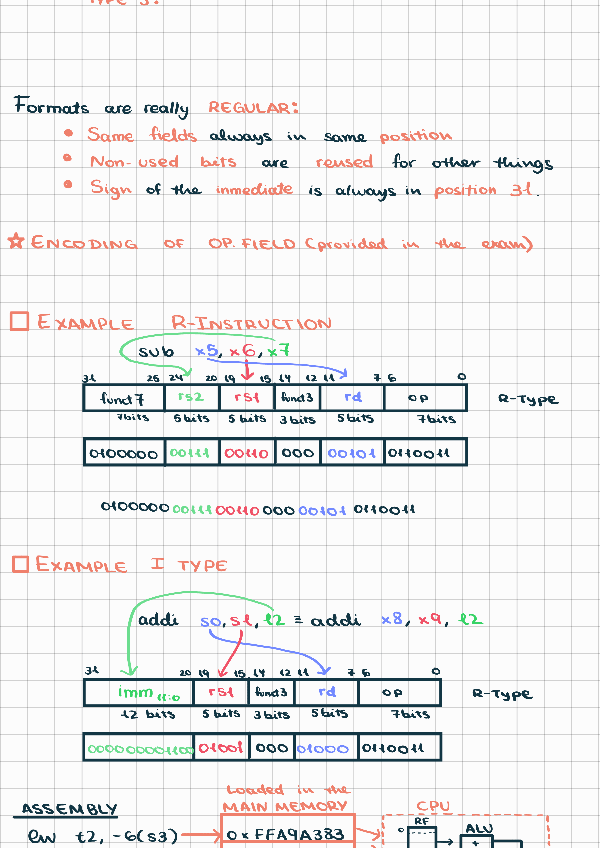 TYPE S:
Formats are really REGULAR:
• Same fields always in same position
• Non-used bits are reused for other things
• Sign of the inmediate is always in position 31.
☆ ENCODING OF OP. FIELD (provided in the exam)
□ EXAMPLE R-INSTRUCTION
sub x5, x6, x7
31 25 24 20 19 15 14 12 11 7 6 0
funct7 rs2 rs1 funct3 rd op R-TYPE
7bits 5 bits 5 bits 3 bits 5 bits 7bits
0100000 00111 00110 000 00101 0110011
0100000 00111 00110 000 00101 0110011
□ EXAMPLE I TYPE
addi s0, s1, 12 ≡ addi x8, x9, 12
31 20 19 15 14 12 11 7 6 0
imm 11:0 rs1 funct3 rd op R-TYPE
12 bits 5 bits 3 bits 5bits 7bits
000000001100 01001 000 01000 0110011
Loaded in the
ASSEMBLY MAIN MEMORY CPU
lw t2, -6(s3) 0xFFA9A383 0 RF ALU
+